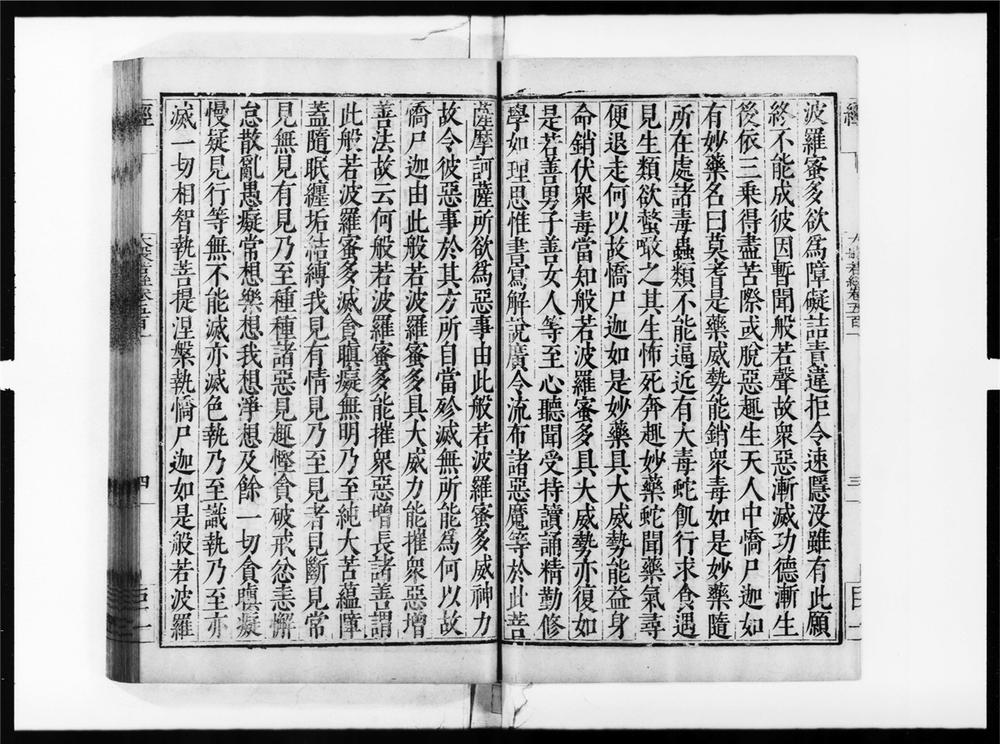 波羅蜜多欲爲障礙詰責違拒令速隱没雖有此願
終不能成彼因暫聞般若聲故衆惡漸滅功德漸生
後依三乘得盡苦際或脫惡趣生天人中憍尸迦如
有妙藥名曰莫耆是藥威勢能銷衆毒如是妙藥隨
所在處諸毒蟲類不能逼近有大毒蛇飢行求食遇
見生類欲螫噉之其生怖死奔趣妙藥蛇聞藥氣尋
便退走何以故憍尸迦如是妙藥具大威勢能益身
命銷伏衆毒當知般若波羅蜜多具大威勢亦復如
是若善男子善女人等至心聽聞受持讀誦精勤修
學如理思惟書寫解說廣令流布諸惡魔等於此菩
薩摩訶薩所欲爲惡事由此般若波羅蜜多威神力
故令彼惡事於其方所自當殄滅無所能爲何以故
憍尸迦由此般若波羅蜜多具大威力能摧衆惡增
善法故云何般若波羅蜜多能摧衆惡增長諸善謂
此般若波羅蜜多滅貪瞋癡無明乃至純大苦蘊障
蓋隨眠纏垢結縛我見有情見乃至見者見斷見常
見無見有見乃至種種諸惡見趣慳貪破戒忿恚懈
怠散亂愚癡常想樂想我想淨想及餘一切貪瞋癡
慢疑見行等無不能滅亦滅色執乃至識執乃至亦
滅一切相智執菩提涅槃執憍尸迦如是般若波羅
經
四
三